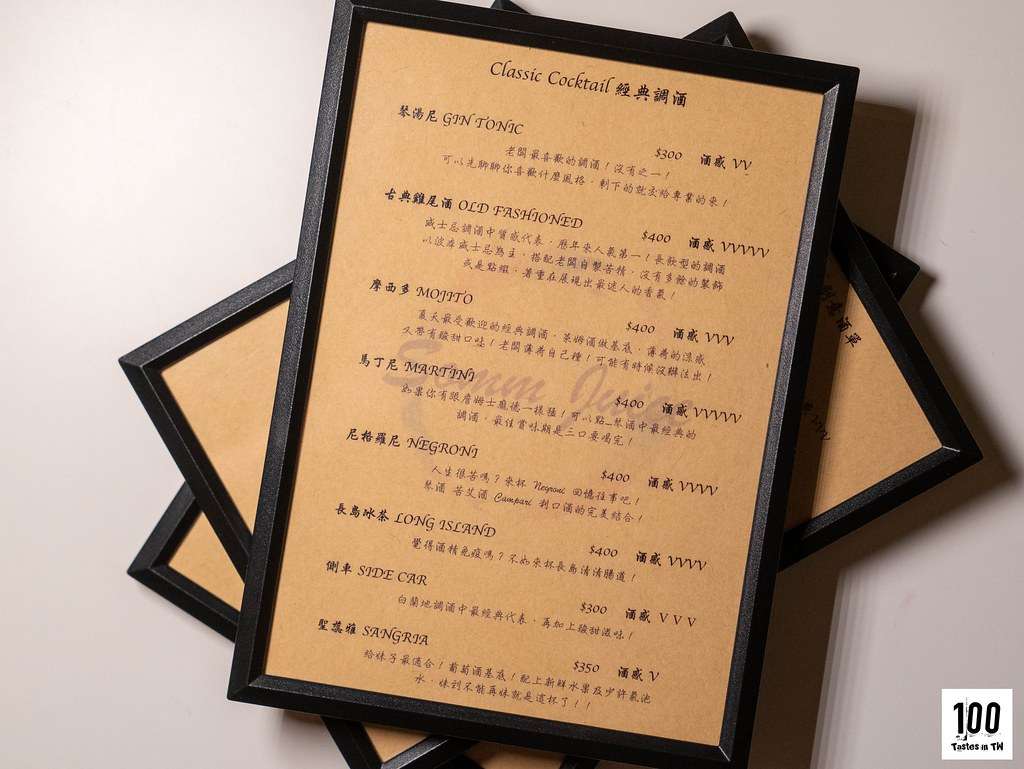 Classic Cocktail 經典調酒
琴湯尼 GIN TONIC
$300 酒感 VV
老闆最喜歡的調酒！沒有之一！
可以先聊聊你喜歡什麼風格，剩下的就交給專業的來！
古典雞尾酒 OLD FASHIONED
$400 酒感 VVVVV
威士忌調酒中質感代表，歷年來人氣第一！長飲型的調酒
以波本威士忌為主，搭配老闆自製苦精，沒有多餘的裝飾
或是點綴，著重在展現出最迷人的香氣！
摩西多 MOJITO
$400 酒感 VVV
夏天最受歡迎的經典調酒，萊姆酒做基底，薄荷的涼感
久帶有酸甜口味！老闆薄荷自己種！可能有時候沒辦法出！
馬丁尼 MARTINI
$400 酒感 VVVVV
如果你有跟詹姆士龐德一樣猛！可以點_琴酒中最經典的
調酒，最佳賞味期是三口要喝完！
尼格羅尼 NEGRONI
$400 酒感 VVVV
人生很苦嗎？來杯 Negroni 回憶往事吧！
琴酒 苦艾酒 Campari 利口酒的完美結合！
長島冰茶 LONG ISLAND
$400 酒感 VVVV
覺得酒精免疫嗎？不如來杯長島清清腸道！
側車 SIDE CAR
$300 酒感 V V V
白蘭地調酒中最經典代表，再加上酸甜滋味！
聖蕊雅 SANGRIA
$350 酒感 V
給妹子最適合！葡萄酒基底！配上新鮮水果及少許氣泡
水，妹到不能再妹就是這杯了！！
酒單
100
Tastes in TW